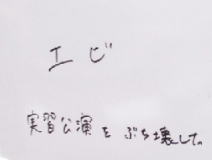 エビ
実習公演をぶち壊した。